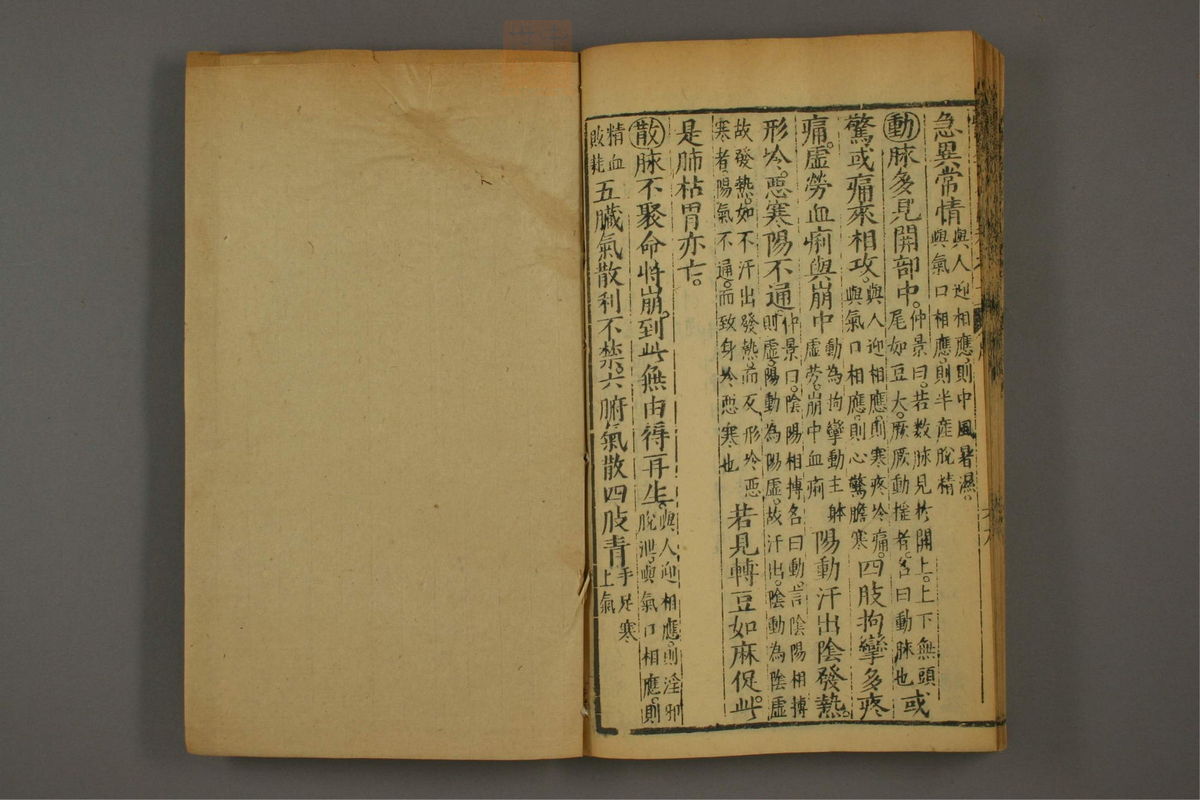 急異常情與人迎相應,則中風暑濕。與氣口相應,則半產脫精
動脉多見開部中。仲景曰。若數脉見於開上。上下無頭尾如豆大。厥厥動摧者。名曰動脉也或
驚或痛來相攻。與人迎相應。則寒疼冷痛。與氣口相應。則心驚膽寒四肢拘攣多疼
痛。虛勞血痢與崩中動為拘攣動主躰虛勞。崩中血痢陽動汗出陰發熱。
形冷。惡寒陽不通仲景曰。陰陽相搏名曰動。言陰陽相搏則虛。陽動為陽虛。故汗出。陰動為陰虛
故發熱。如不汗出發熱。而反形冷惡寒者。陽氣不通。而致身冷惡寒也若見轉豆如麻促此。
是肺枯胃亦亡。
散脉不聚命將崩。到此無由得再生。與人迎相應。則淫邪脫泄。與氣口相應。則
精血敗耗五臟氣散利不禁。六腑氣散四肢青手足寒上氣